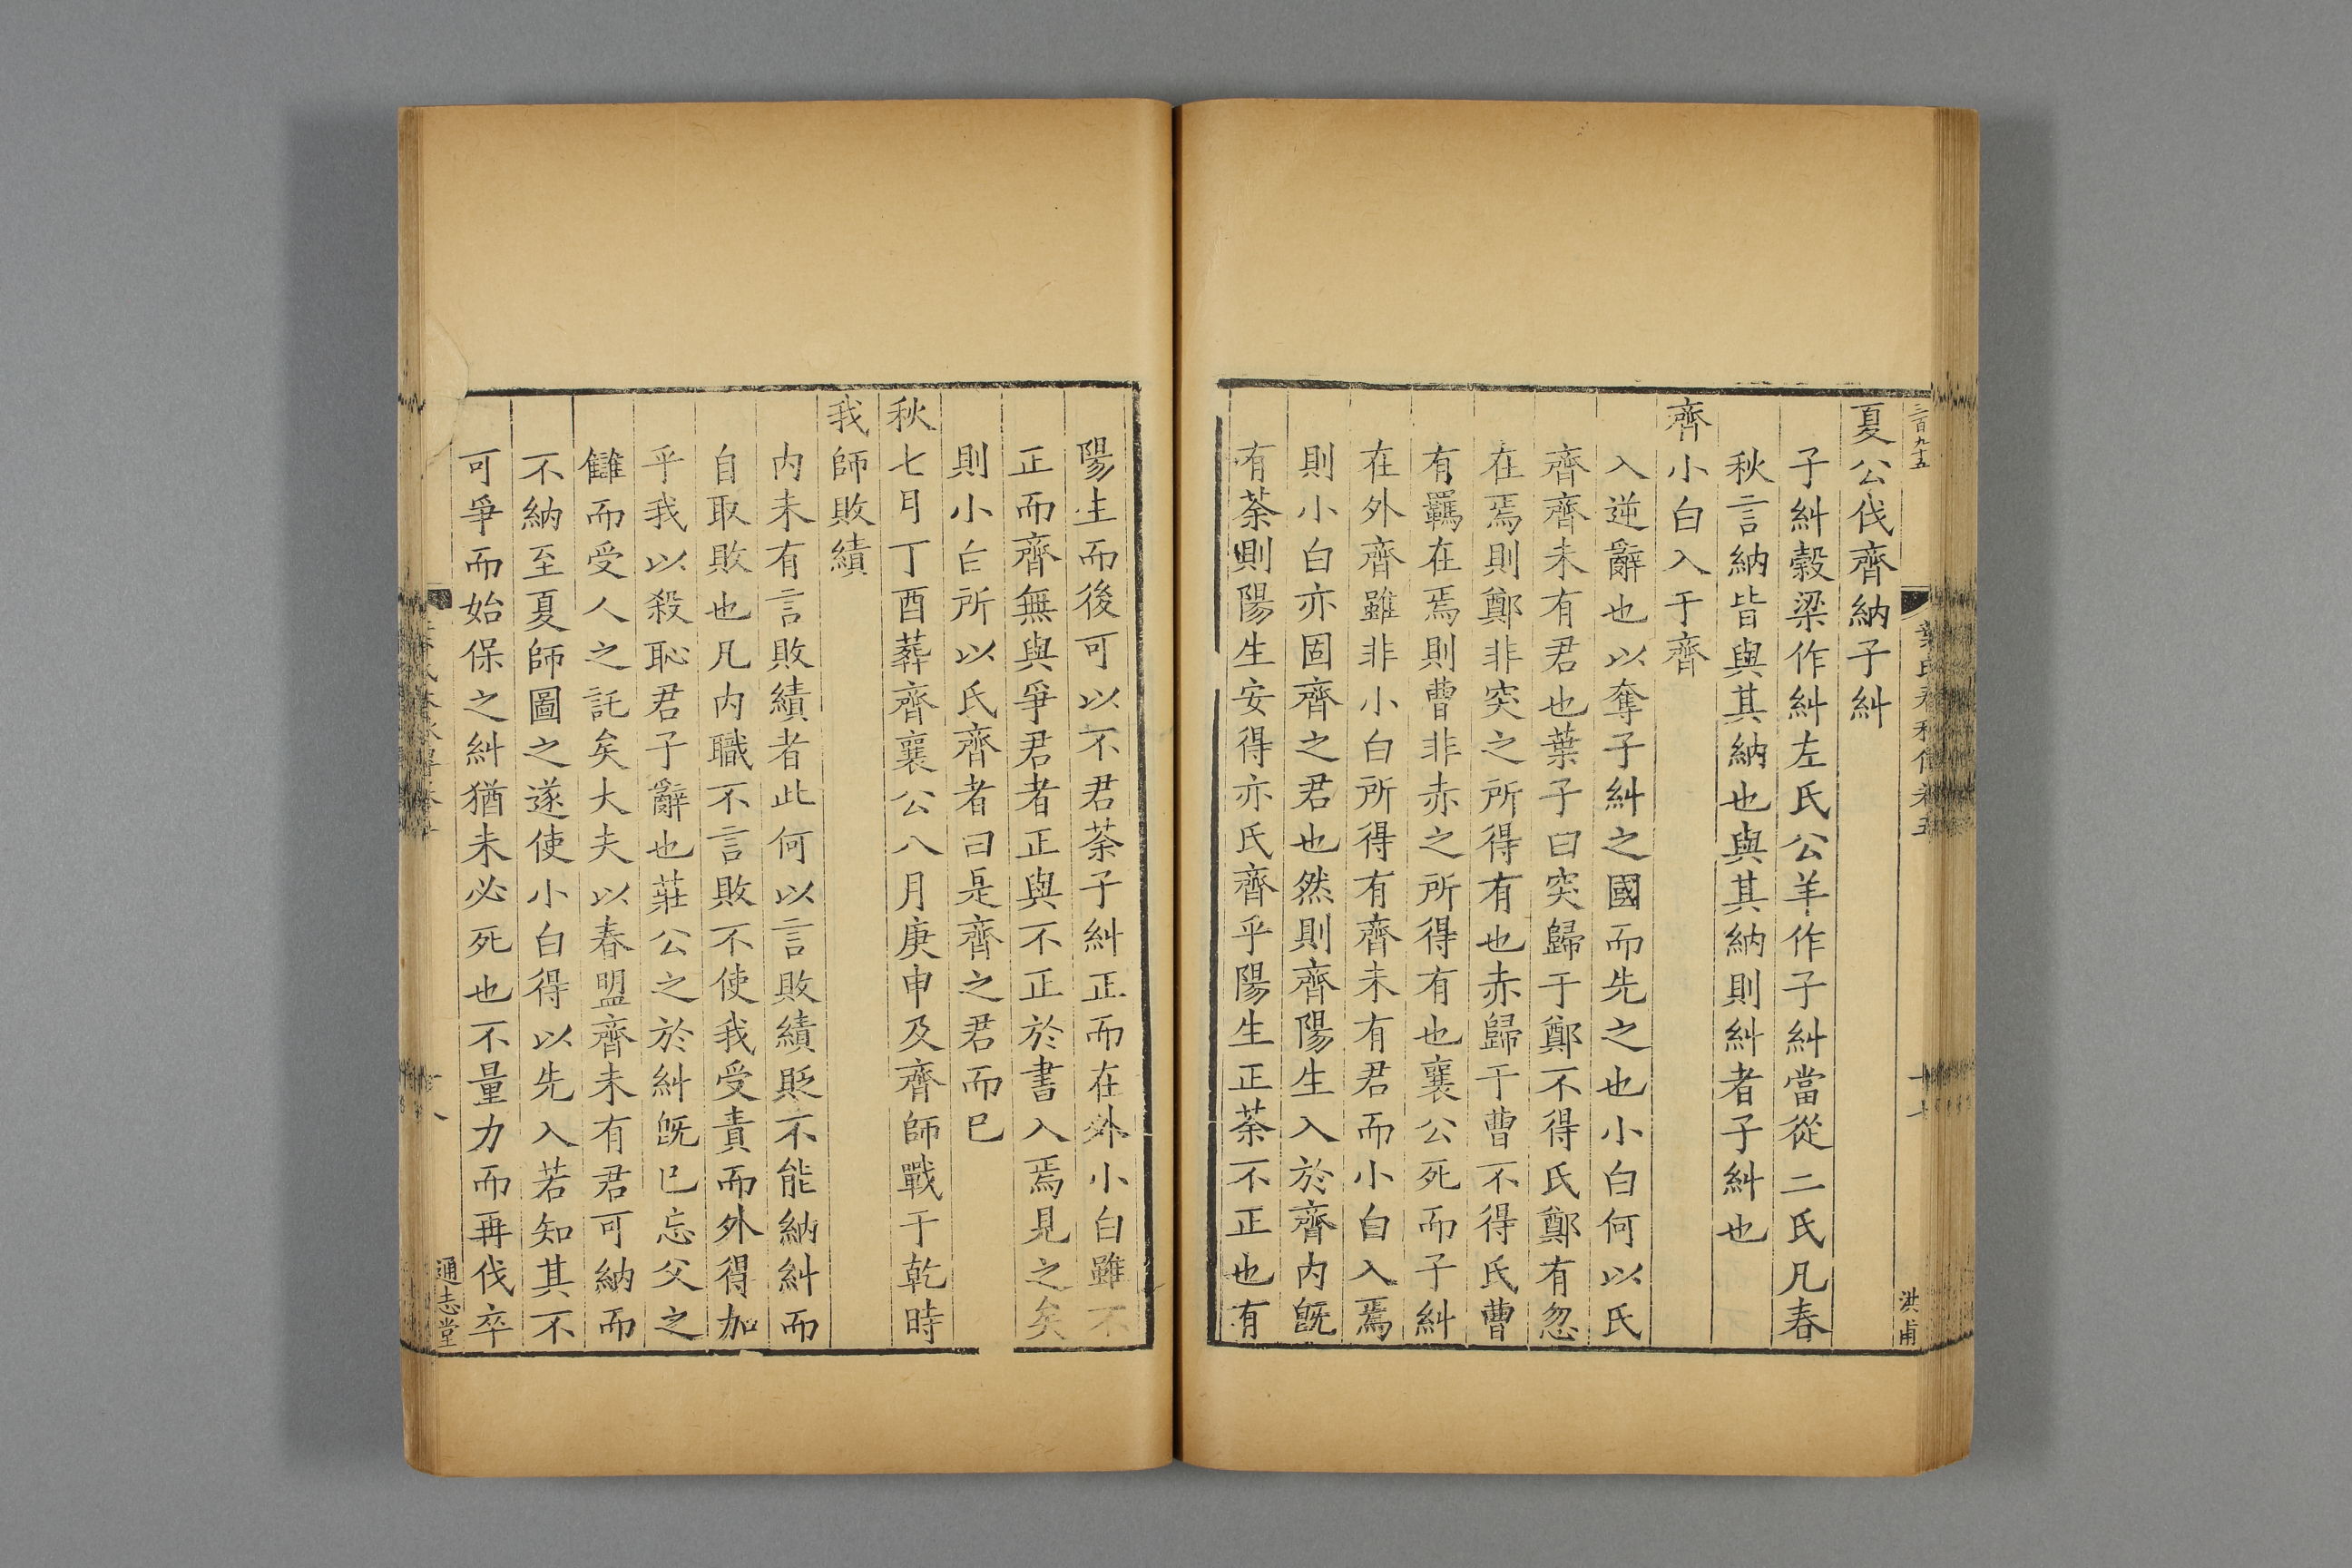 三百九十五
葉氏春秋傳卷五
洪甫
夏公伐齊納子糾
子糾穀梁作糾左氏公羊作子糾當從二氏凡春
秋言納皆與其納也與其納則糾者子糾也
齊小白入于齊
入逆辭也以奪子糾之國而先之也小白何以氏
齊齊未有君也葉子曰突歸于鄭不得氏鄭有忽
在焉則鄭非突之所得有也赤歸于曹不得氏曹
有羈在焉則曹非赤之所得有也襄公死而子糾
在外齊雖非小白所得有齊未有君而小白入焉
則小白亦固齊之君也然則齊陽生入於齊內旣
有荼則陽生安得亦氏齊乎陽生正荼不正也有
陽生而後可以不君荼子糾正而在外小白雖不
正而齊無與爭君者正與不正於書入焉見之矣
則小白所以氏齊者曰是齊之君而已
秋七月丁酉葬齊襄公八月庚申及齊師戰于乾時
我師敗績
內未有言敗績者此何以言敗績貶不能納糾而
自取敗也凡內職不言敗不使我受責而外得加
乎我以殺恥君子辭也莊公之於糾旣已忘父之
讎而受人之託矣大夫以春盟齊未有君可納而
不納至夏師圖之遂使小白得以先入若知其不
可爭而始保之糾猶未必死也不量力而再伐卒
通志堂